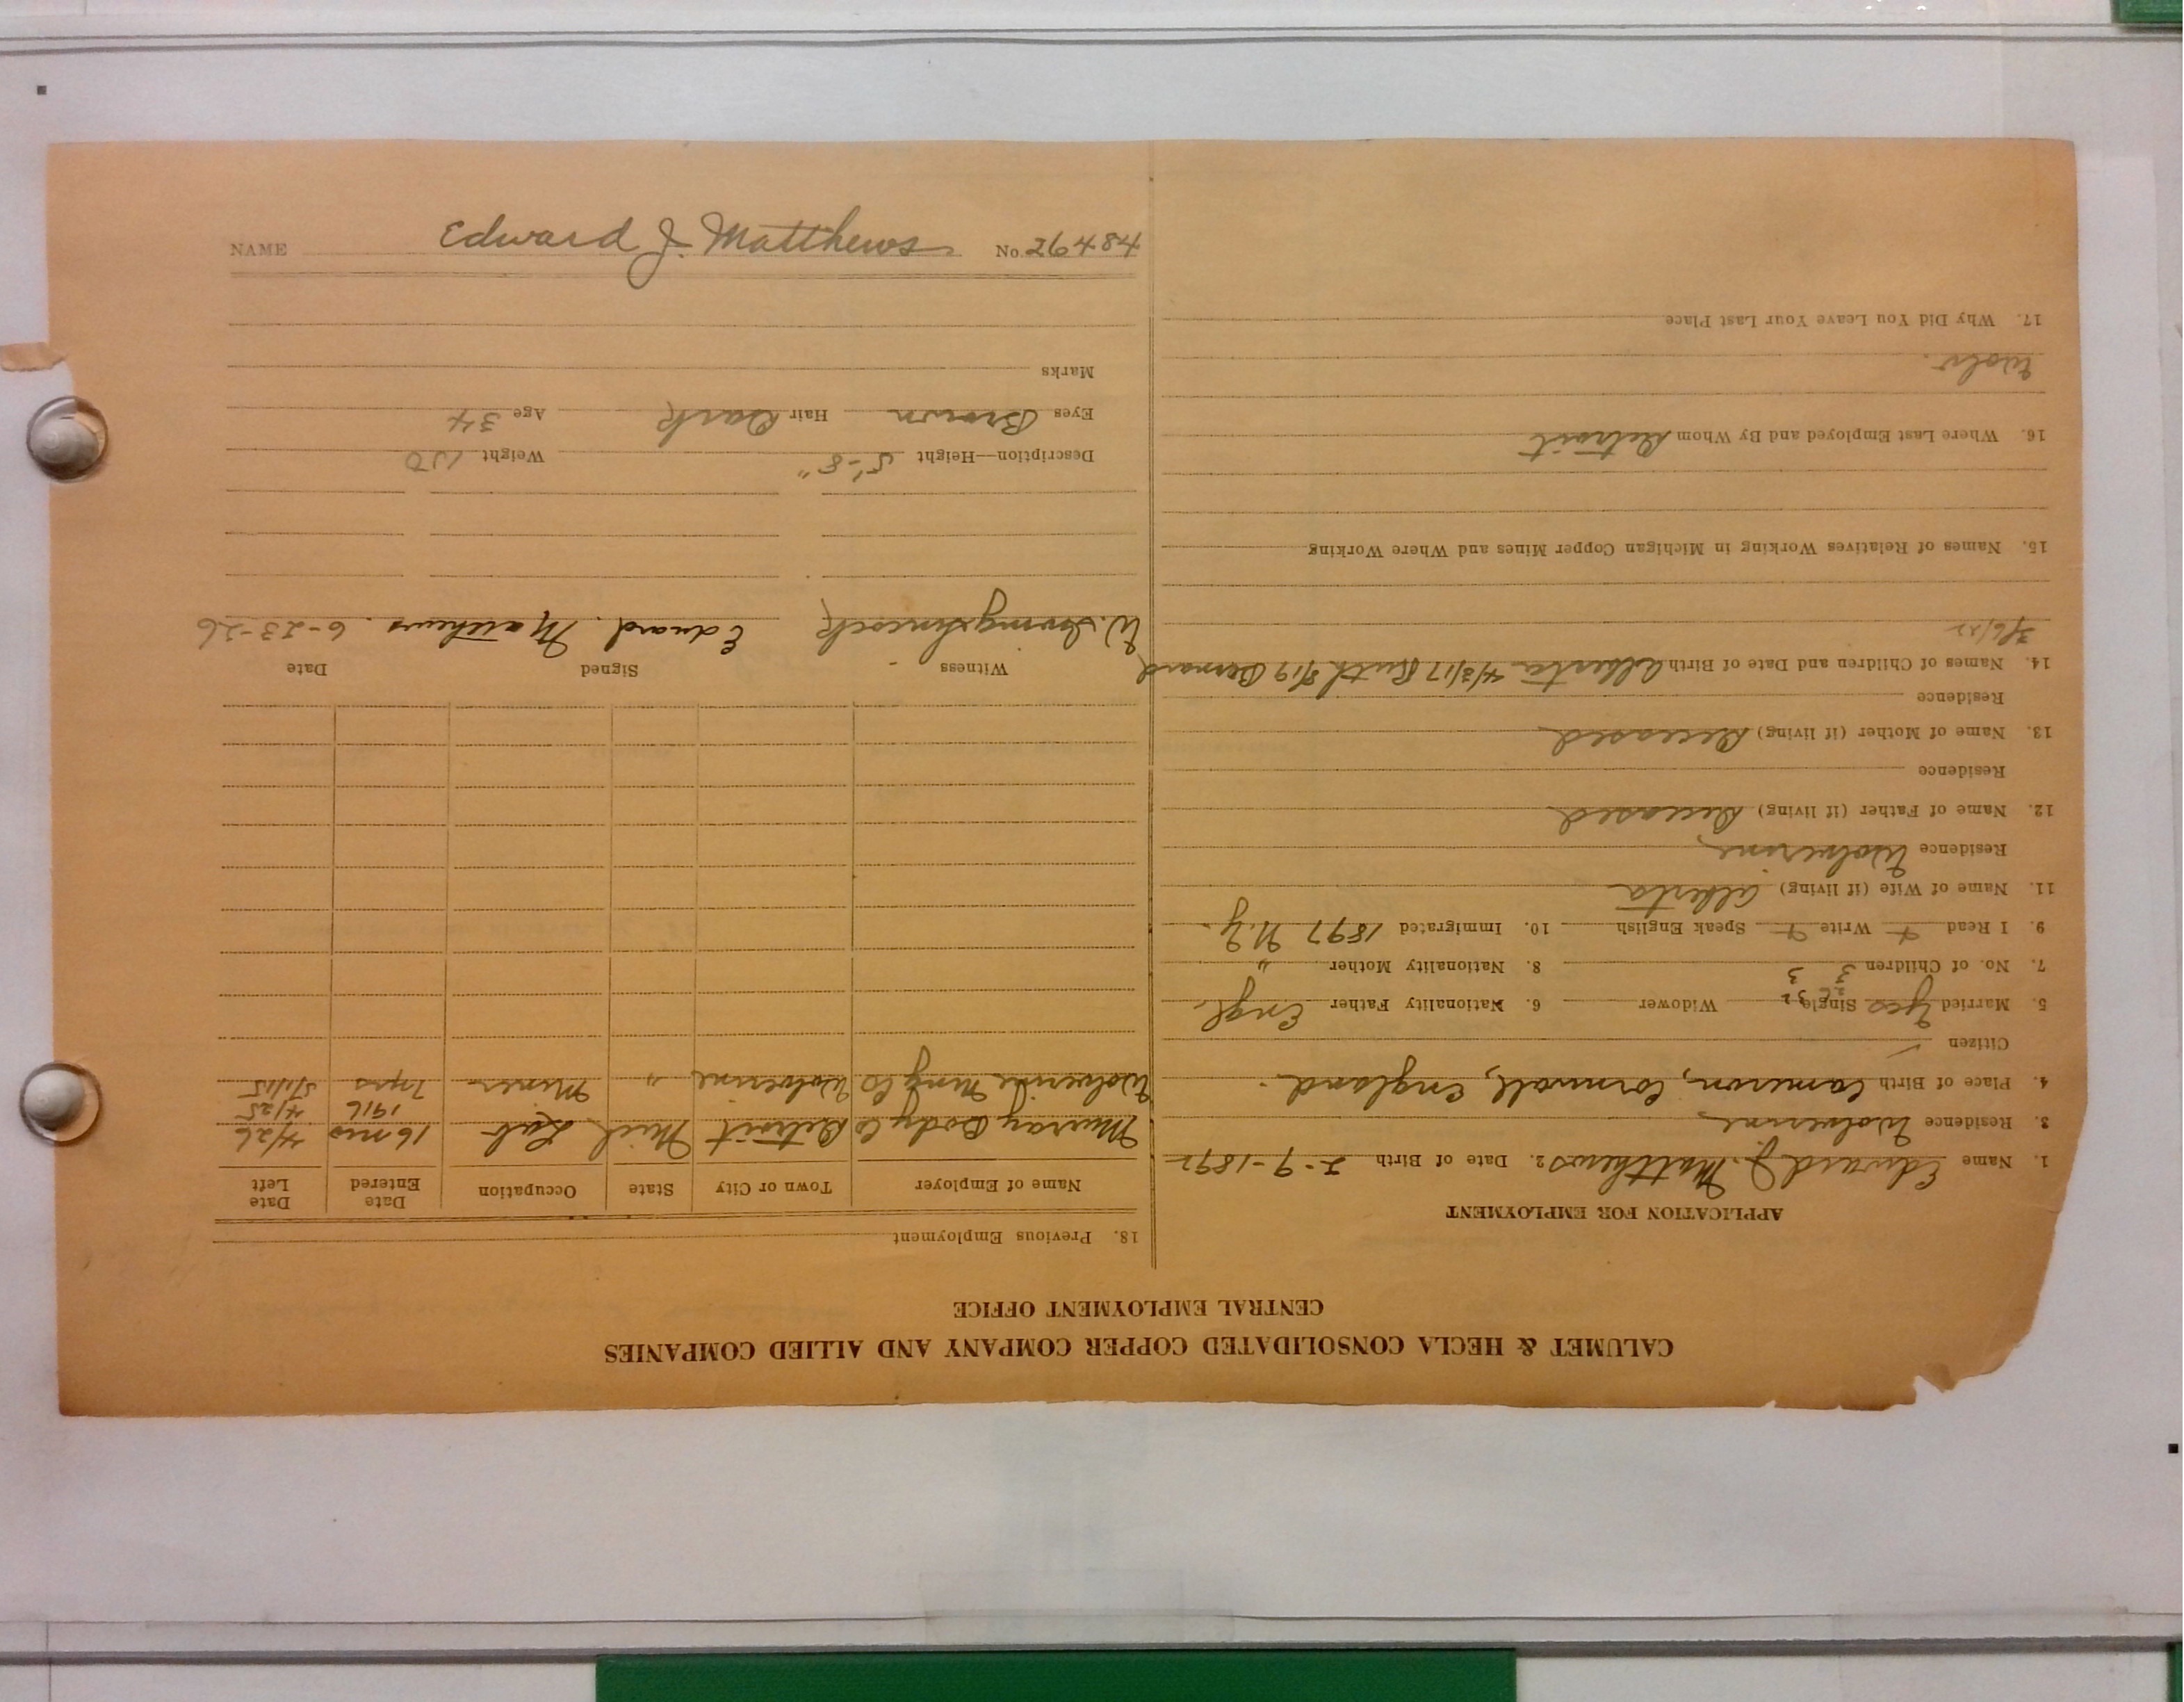 NAME Edward J. Matthews No. 26484
CALUMET & HECLA CONSOLIDATED COPPER COMPANY AND ALLIED COMPANIES
CENTRAL EMPLOYMENT OFFICE
APPLICATION FOR EMPLOYMENT
1. Name Edward J. Matthews 2. Date of Birth 2-9-1892
3. Residence Wolverine
4. Place of Birth Cameron, Cornwall, England.
Citizen ✓
5. Married Yes Single Widower 6. Nationality Father Engl.
7. No. of Children 3 3 8. Nationality Mother "
9. I Read Write Speak English 10. Immigrated 1897 N.Y.
11. Name of Wife (if living) Alberta
Residence Wolverine
12. Name of Father (if living) Deceased
Residence
13. Name of Mother (if living) Deceased
Residence
14. Names of Children and Date of Birth Alberta 4/3/17 Ruth 8/19 Bernard
3/6/22
15. Names of Relatives Working in Michigan Copper Mines and Where Working
16. Where Last Employed and By Whom Detroit
Wolv.
17. Why Did You Leave Your Last Place
18. Previous Employment
Name of Employer Town or City State Occupation Date Entered Date Left
Murray Body Co Detroit Mich Lab 16 mos 4/26
1916 4/25
Wolverine Mng Co Wolverine " Miner 7 yrs
Witness Signed Date
Edward. Matthews. 6-23-26
Description—Height 5'-8" Weight 150
Eyes Brown Hair Dark Age 34
Marks